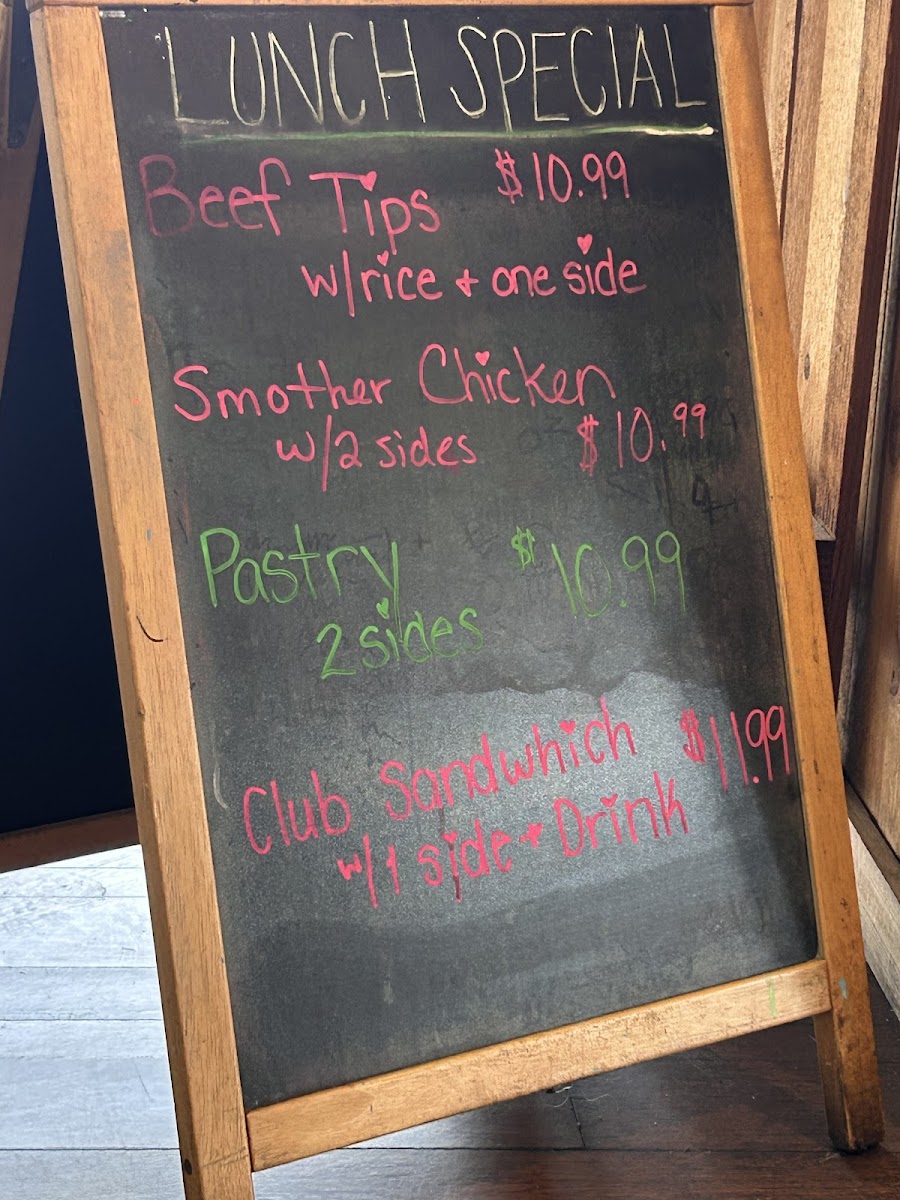 LUNCH SPECIAL
Beef Tips $10.99
w/rice + one side
Smother Chicken
w/2 sides $10.99
Pastry $10.99
2 sides
Club Sandwhich $11.99
w/1 side + Drink